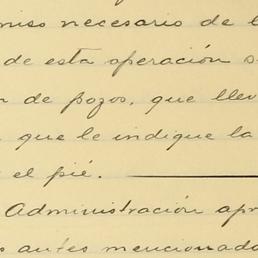 miso necesario de l
de esta operación s
n de pozos, que llev
que le indique la
el pié.
Administración apr
s antes mencionada